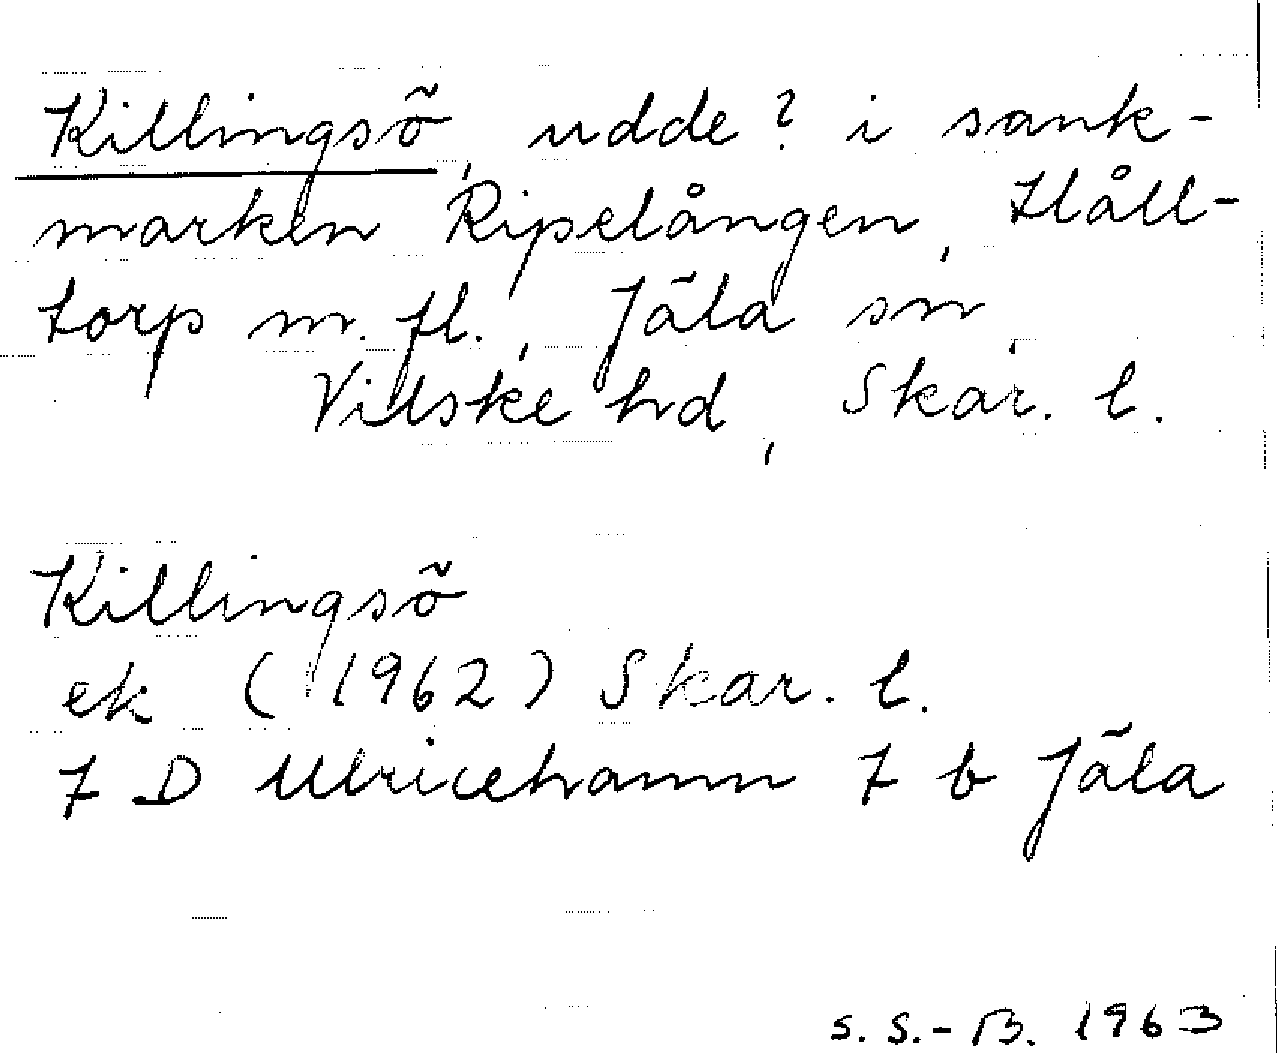 Killingsö, udde? i sank-
marken Ripelången, Håll-
torp m.fl., Jäla sn,
Vilske hd, Skar. l.
Killingsö
ek (1962) Skar. l.
7 D Ulricehamn 7 b Jäla
S. S.-B. 1963